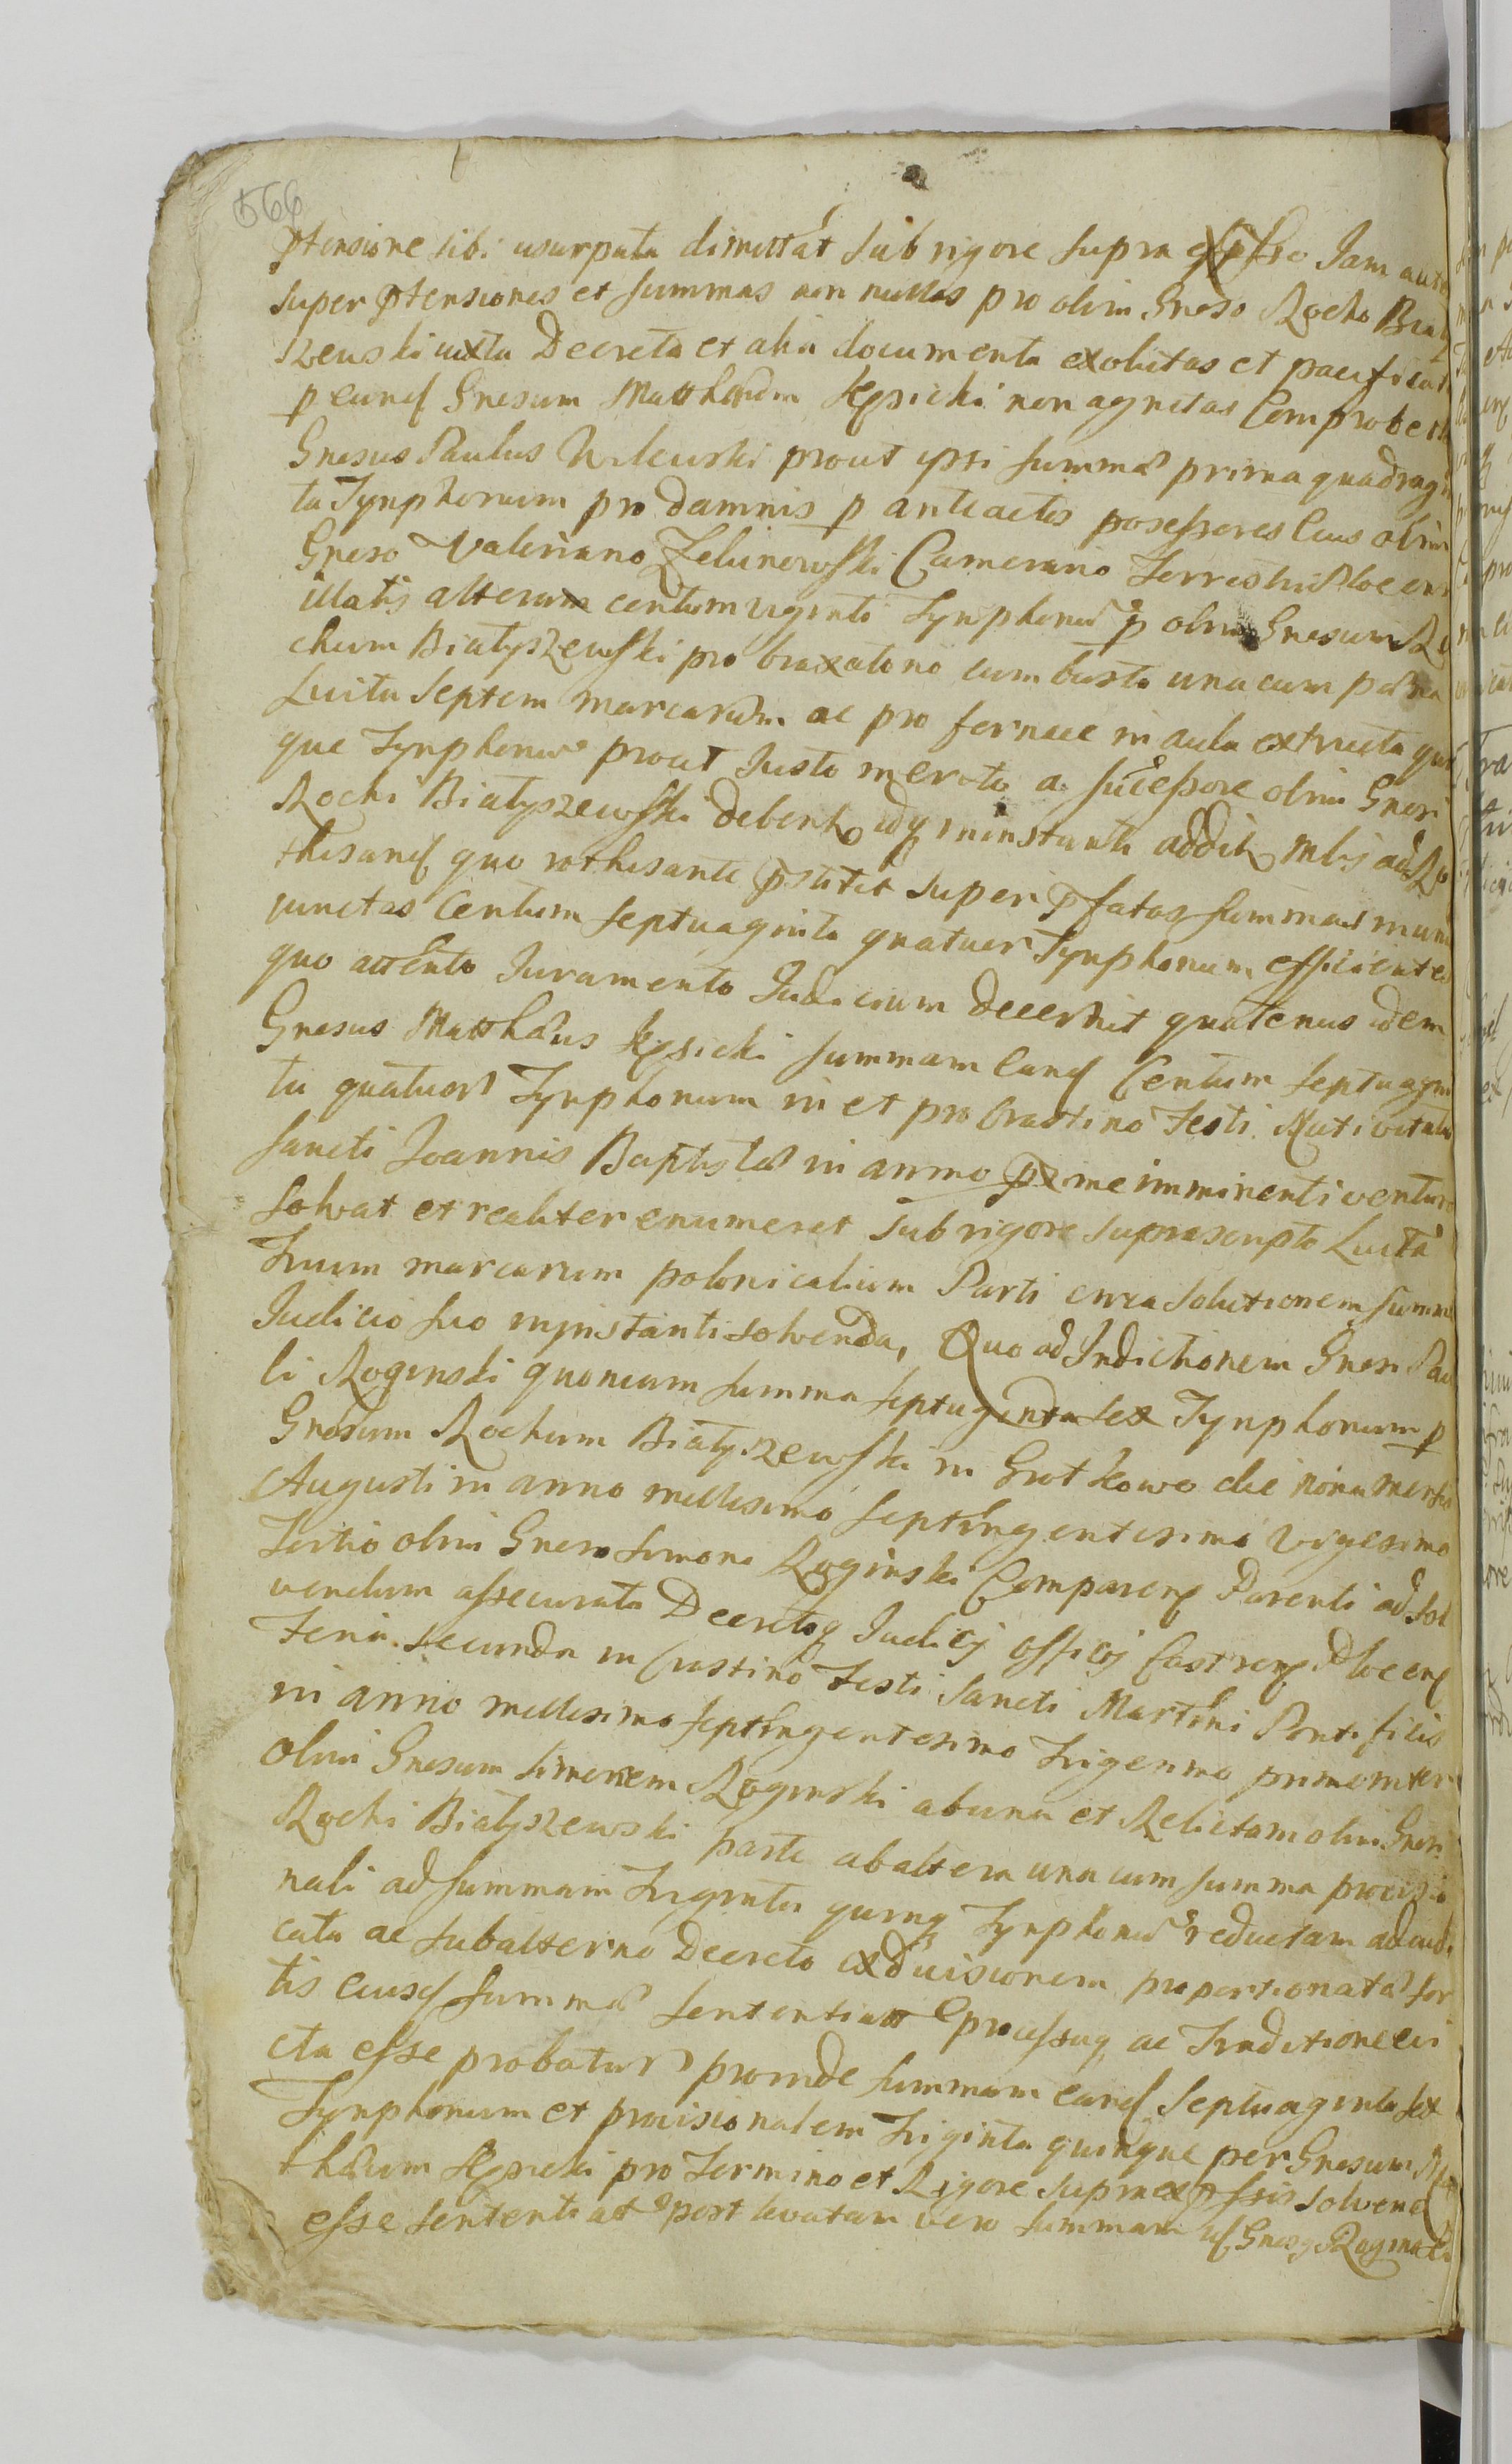 566
ptensione sibi usurpata dimittat sub rigore supra expsso Iam aut
super ptensiones et summas non nullas pro olim Gneso Rocho Biały
szewski iuxta Decreta et alia documenta exolutas et pacificat
p eund Gnesum Matthæum Sępicki non agnitas Comprobet
Gnesus Paulus Wilewski prout ipsi summæ prima quadragin
ta Tynphonum pro damnis p anteactos posessores Eius olim
Gneso Valeriano Zelinowski Camerario Terrestri Plocen
illatis altera centum viginti Tynphonu p olim Gnesum Ro
chum Białyszewski pro braxatorio combusto una cum pæna
Luita septem marcarum ac pro fornace in aula extructa quin
que Tynphonu prout iusto merito a sucessore olim Gnesi
Rochi Białyszewski debent idq in instanti addit ad Ro
thisand quo rothisante pstitit super pfatas summas in un
iunctas Centum septuaginta quatuor Tynphonum efficiente
quo attento Iuramento Iudicium decernit quatenus idem
Gnesus Matthæus Sępicki summam eand Centum septuagin
ta quatuor Tynphonum in et pro Crastino Festi Nativitatis
Sancti Joannis Baptistæ in anno pxime imminenti venturo
solvat et realiter enumeret sub rigore suprascripto Luita
Trium marcarum polonicalium Parti circa solutionem summæ
Iudicio suo in instanti solvenda, Quo ad Indictionem Gnesi Pau
li Roginski quoniam summa septuginta sex Tynphonum p
Gnesum Rochum Białyszewski in Grotkowo die nona mensis
Augusti in anno millesimo septingentesimo vigesimo
Tertio olim Gneso Simoni Roginski Comparen Parenti ad sol
vendum assecurata Decretoq Iudicij officij Castren Plocen
Feria secunda in Crastino Festi Sancti Martini Pontificis
in anno millesimo septingentesimo Trigesimo primo inter
olim Gnesum Simonem Roginski ab una et Relictam olim Gnesi
Rochi Białyszewski parte ab altera una cum summa provisio
nali ad summam Triginta quinq Tynphonu reductam adiudi
cata ac subalterno Decreto ex divisionem proportionatæ sor
tis eiusd summæ sententiat processuq ac Traditione evi
cta esse probatur proinde summam eand septuaginta sex
Tynphonum et provisionalem Triginta quinque per Gnesum Mat
thæum Sępicki pro Termino et Rigore supra expssis solvend
esse sententiat post levatam vero summam id Gnesq Roginski